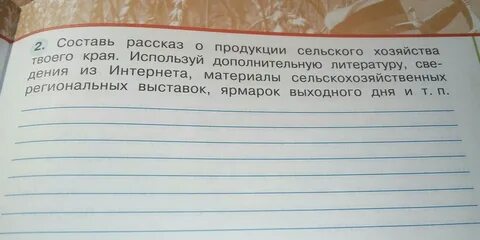 2. Составь рассказ о продукции сельского хозяйства
твоего края. Используй дополнительную литературу, све-
дения из Интернета, материалы сельскохозяйственных
региональных выставок, ярмарок выходного дня и т. п.